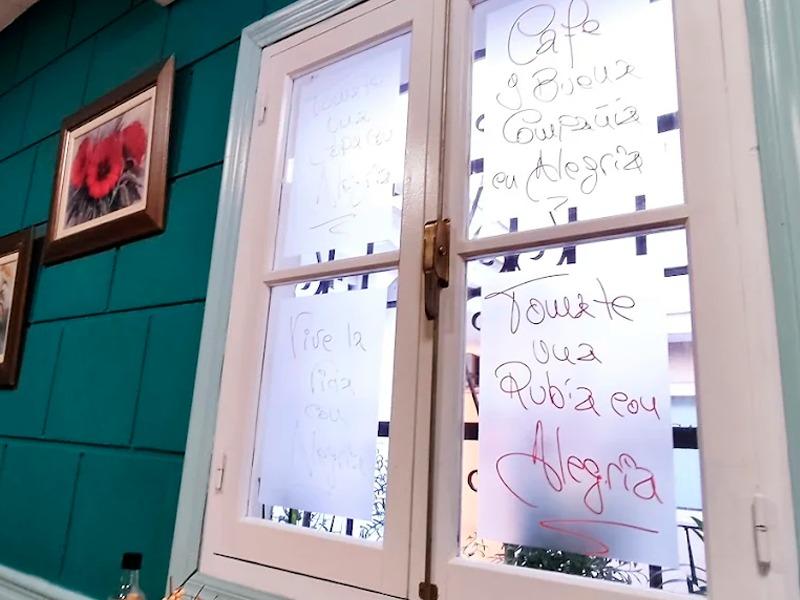 Tomate
una
Separeu
Alegria
Cafe
y Bueua
Compañia
en Alegria
Vive la
Vida
con
Alegria
Tomate
una
Rubia con
Alegria